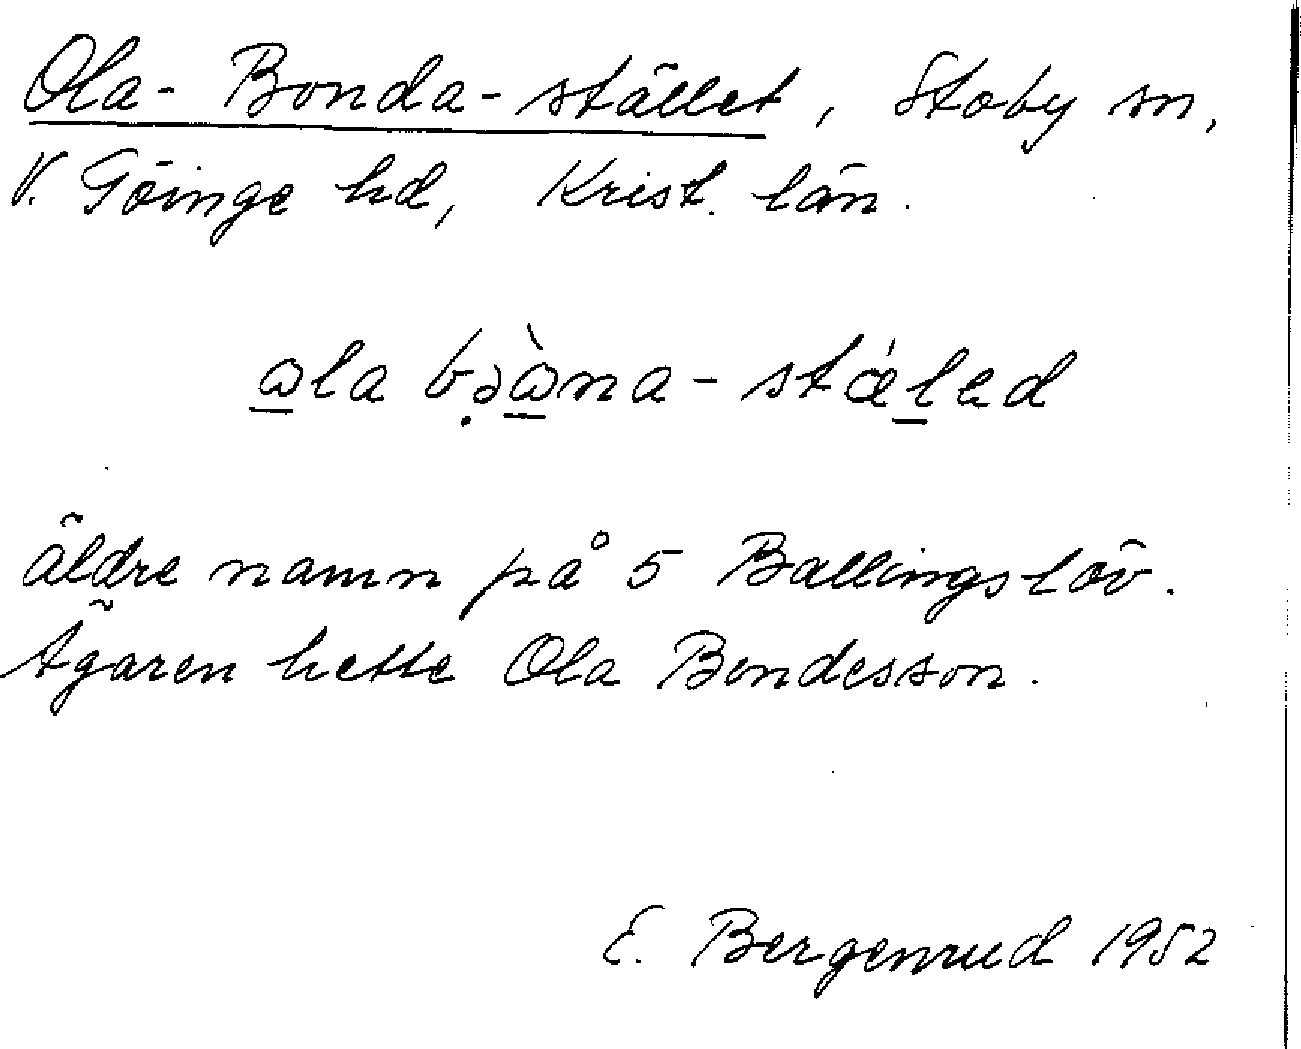 Ola-Bonda-stället, Stoby sn,
V. Göinge hd, Krist. län.
ɷla bə̣ɷ̀na-stǽled
äldre namn på 5 Ballingslöv.
Ägaren hette Ola Bondesson.
E. Bergenrud 1952